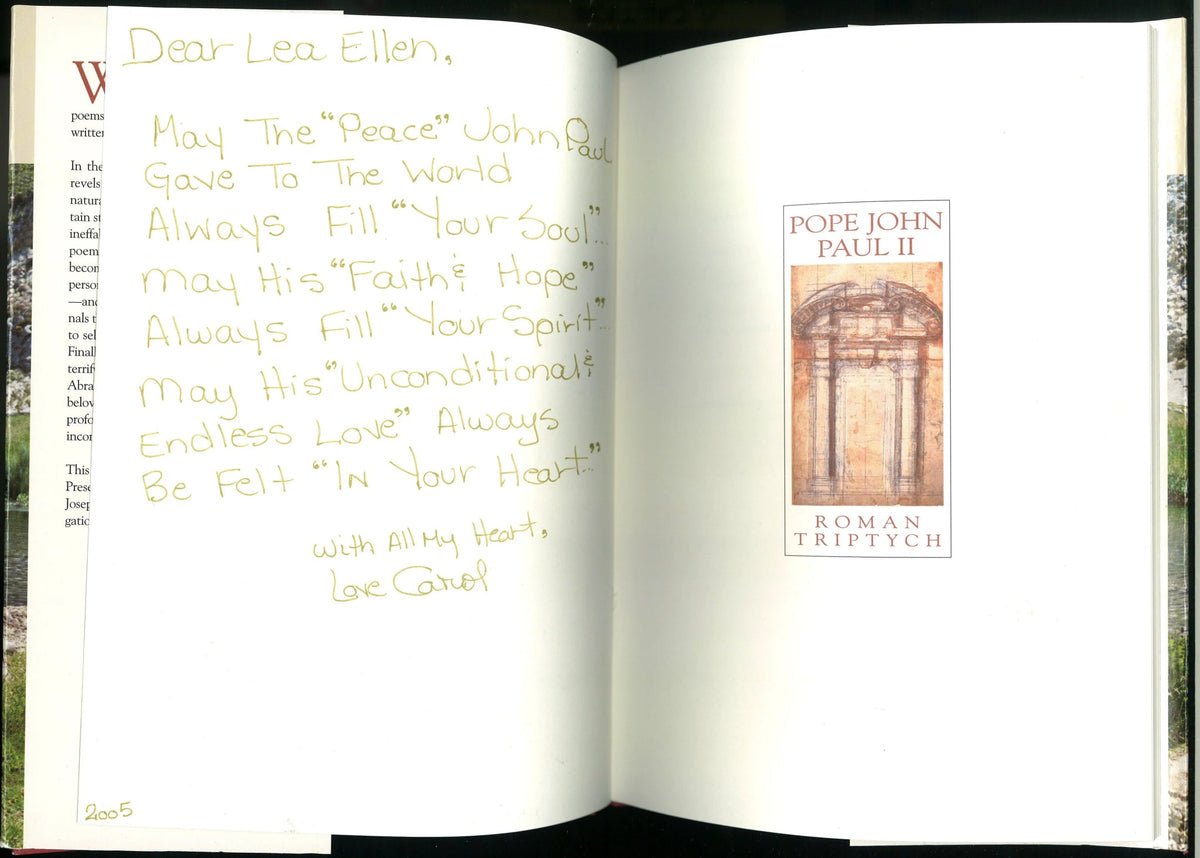 W
poems
written
In the
revels
natura
tain st
ineffa
poem
becom
perso
—and
nals t
to sel
Final
terrif
Abra
belov
profo
incor
This
Prese
Josep
gatio
Dear Lea Ellen,
May The "Peace" John Paul
Gave To The World
Always Fill "Your Soul"...
May His "Faith & Hope"
Always Fill "Your Spirit"...
May His "Unconditional &
Endless Love" Always
Be Felt "In Your Heart..."
With All My Heart,
Love Carol
2005
POPE JOHN
PAUL II
ROMAN
TRIPTYCH